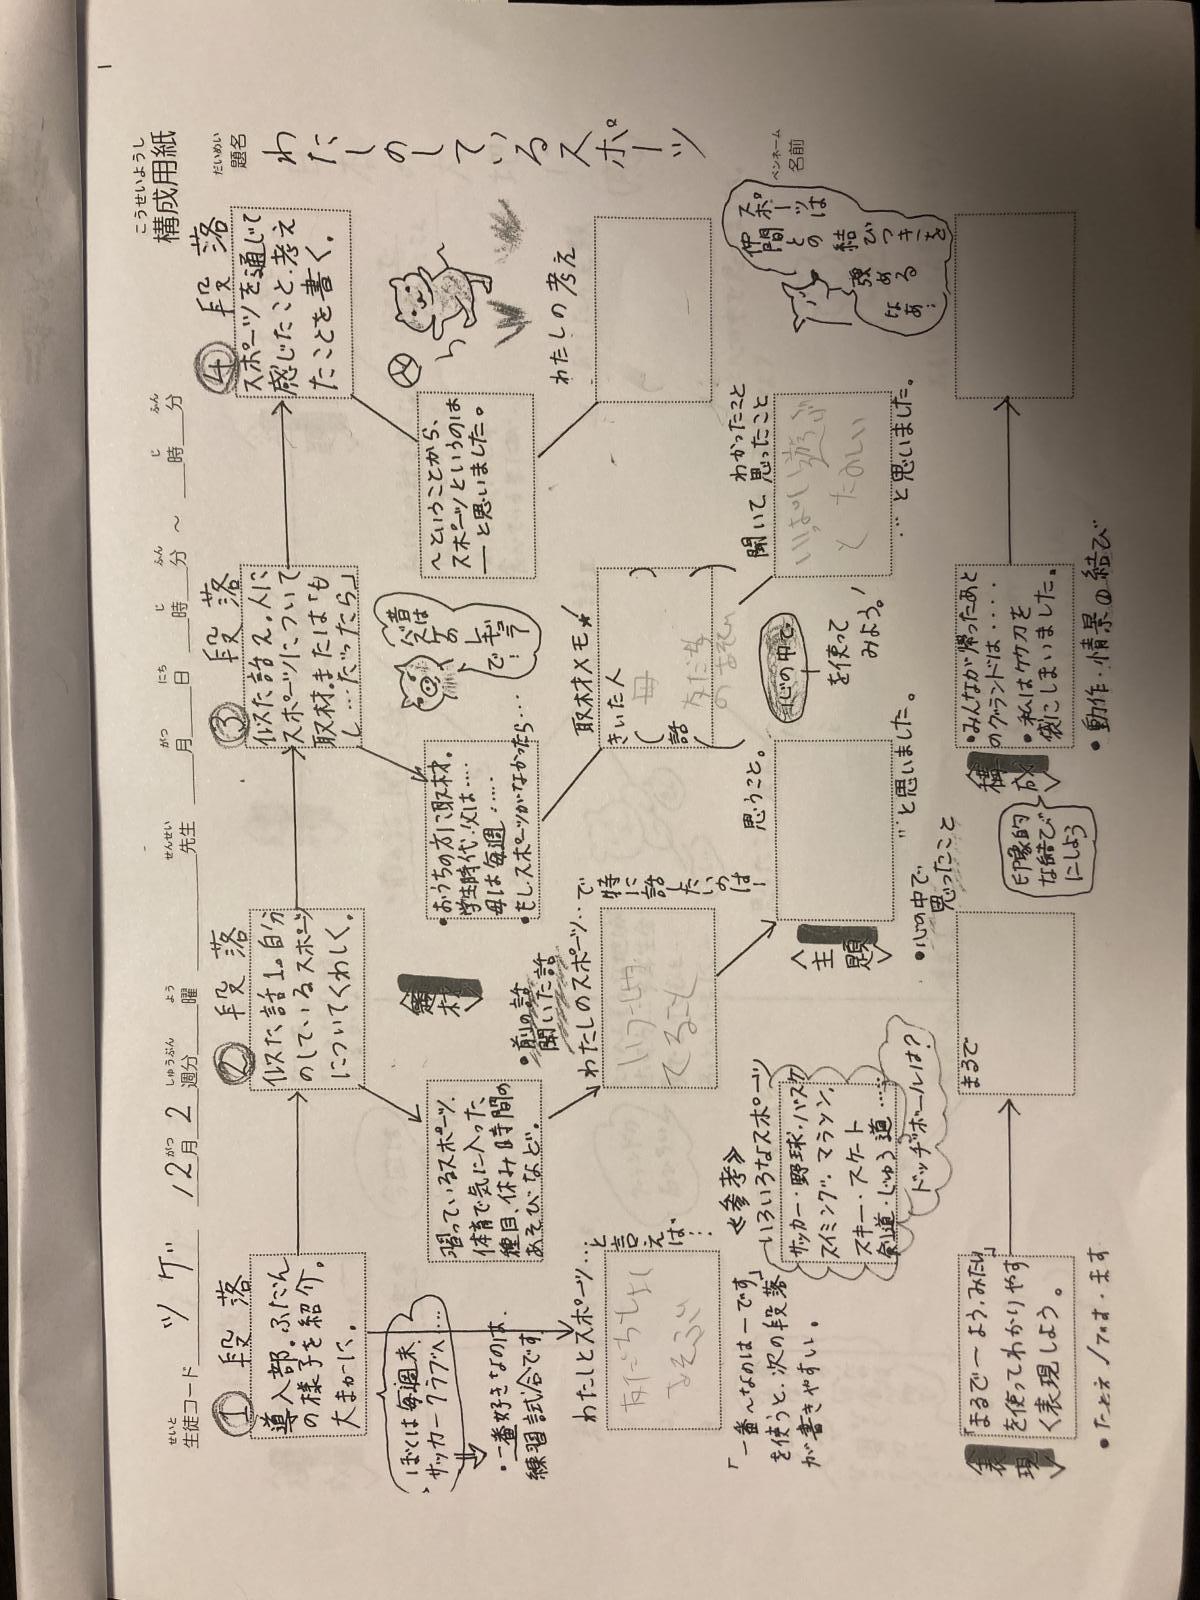 こうせいようし
構成用紙
だいめい
題名
わたしのしているスポーツ
ペンネーム
名前
せいと
生徒コード ツゲ 12月2週分 曜 先生 月 日 時 分 ~ 時 分
がつ しゅうぶん よう せんせい がつ にち じ ふん じ ふん
①段落
導入部。ふだん
の様子を紹介。
大まかに。
②段落
似た話1。自分
のしているスポーツ
についてくわしく。
③段落
似た話2。人に
スポーツについて
取材。または「も
し…だったら」
④段落
スポーツを通じて
感じたこと・考え
たことを書く。
ぼくは毎週末、
サッカークラブへ…
・一番好きなのは、
練習試合です
わたしとスポーツ…
と言えば…
友だちと
「一番~なのは―です」
を使うと、次の段落
が書きやすい。
習っているスポーツ、
体育で気に入った
種目、休み時間の
あそびなど。
題材
・前の話
聞いた話
わたしのスポーツ…で
特に話したいのは!
・おうちの方に取材。
学生時代、父は…
母は毎週……
・もし、スポーツがなかったら…
昔は
バスケの
レギュラーで!
取材メモ★
きいた人
母
(話
友だち
~ということから、
スポーツというのは
―と思いました。
わたしの考え
≪参考≫
いろいろなスポーツ
サッカー・野球・バスケ
スイミング、マラソン、
スキー・スケート
剣道・じゅう道……
ドッヂボールは?
<主題>
思うこと。
…と思いました。
・心の中で
思ったこと
心の中で
を使って
みよう。!
聞いて、わかったこと
思ったこと
遊ぶ
と たのしい
…と思いました。
スポーツは
仲間との
結びつきを
強める
なあ!
<表現>
「まるで~よう、みたい」
を使ってわかりやす
く表現しよう。
・たとえ
まるで
<構成>
印象的
な結び
にしよう
・みんなが帰ったあと
のグランドは・・・・
・私はケケ刀を
袋にしまいました。
・動作・情景の結び
1